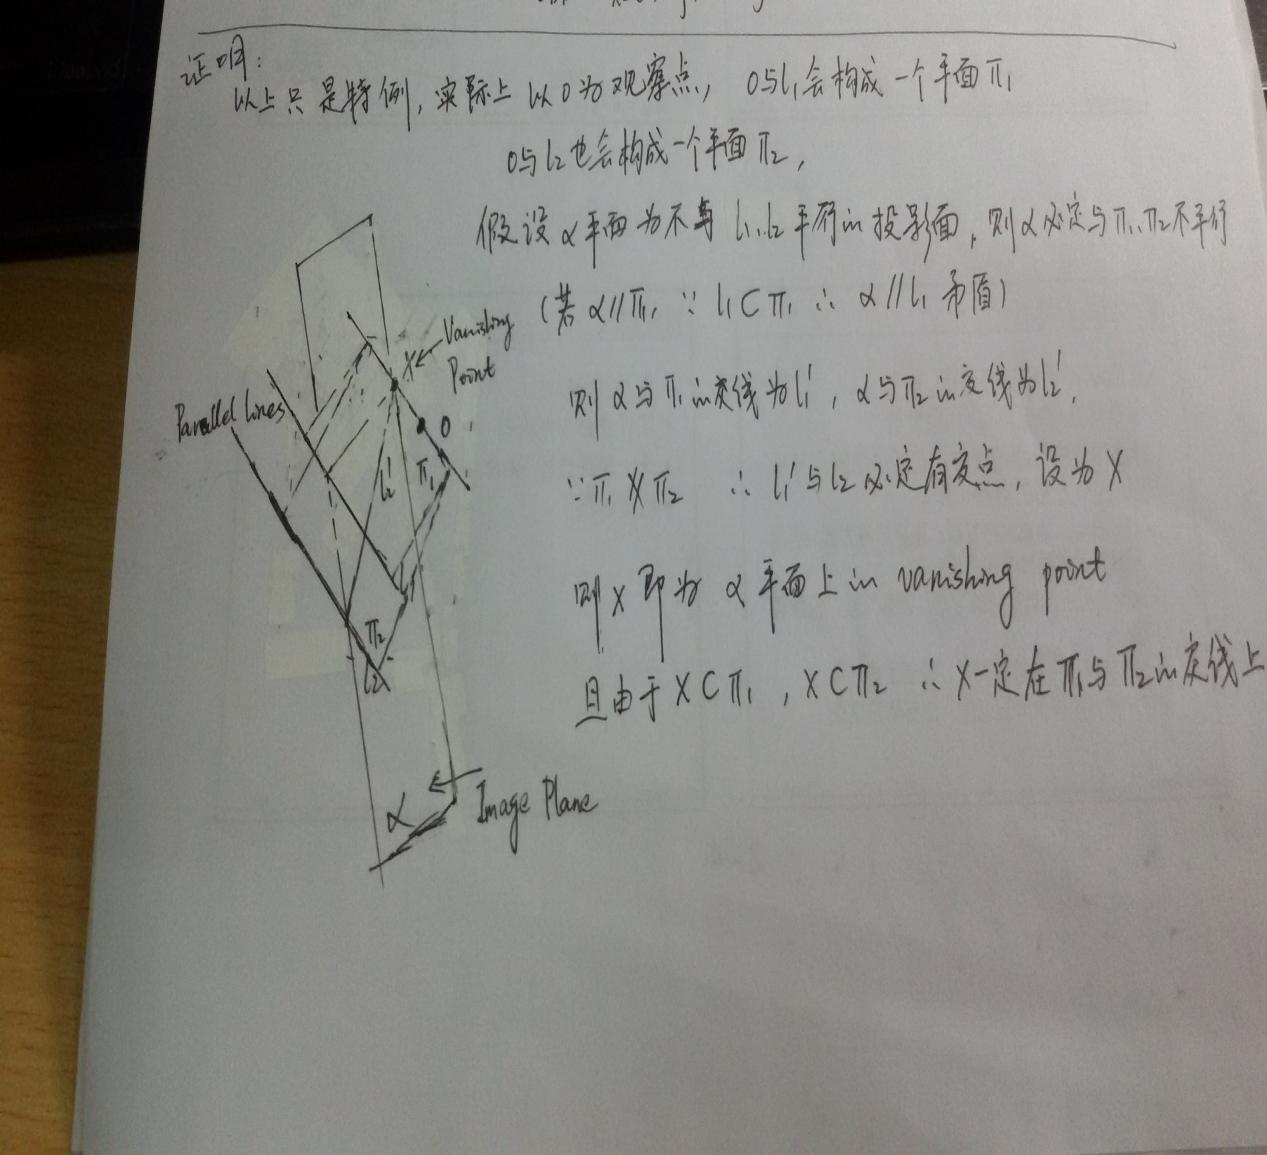 证明:
以上只是特例, 实际上以O为观察点, O与l₁会构成一个平面π₁
O与l₂也会构成一个平面π₂,
假设α平面为不与l₁, l₂平行in投影面, 则α必定与π₁, π₂不平行
(若α//π₁ ∵ l₁⊂π₁ ∴ α//l₁ 矛盾)
则α与π₁in交线为l₁', α与π₂in交线为l₂',
∵π₁∦π₂ ∴ l₁'与l₂必定有交点, 设为X
则X即为α平面上in vanishing point
且由于X⊂π₁, X⊂π₂ ∴X一定在π₁与π₂in交线上
X ← Vanishing
Point
Parallel lines
O
l₂'
π₁
π₂
l₂
α
Image Plane